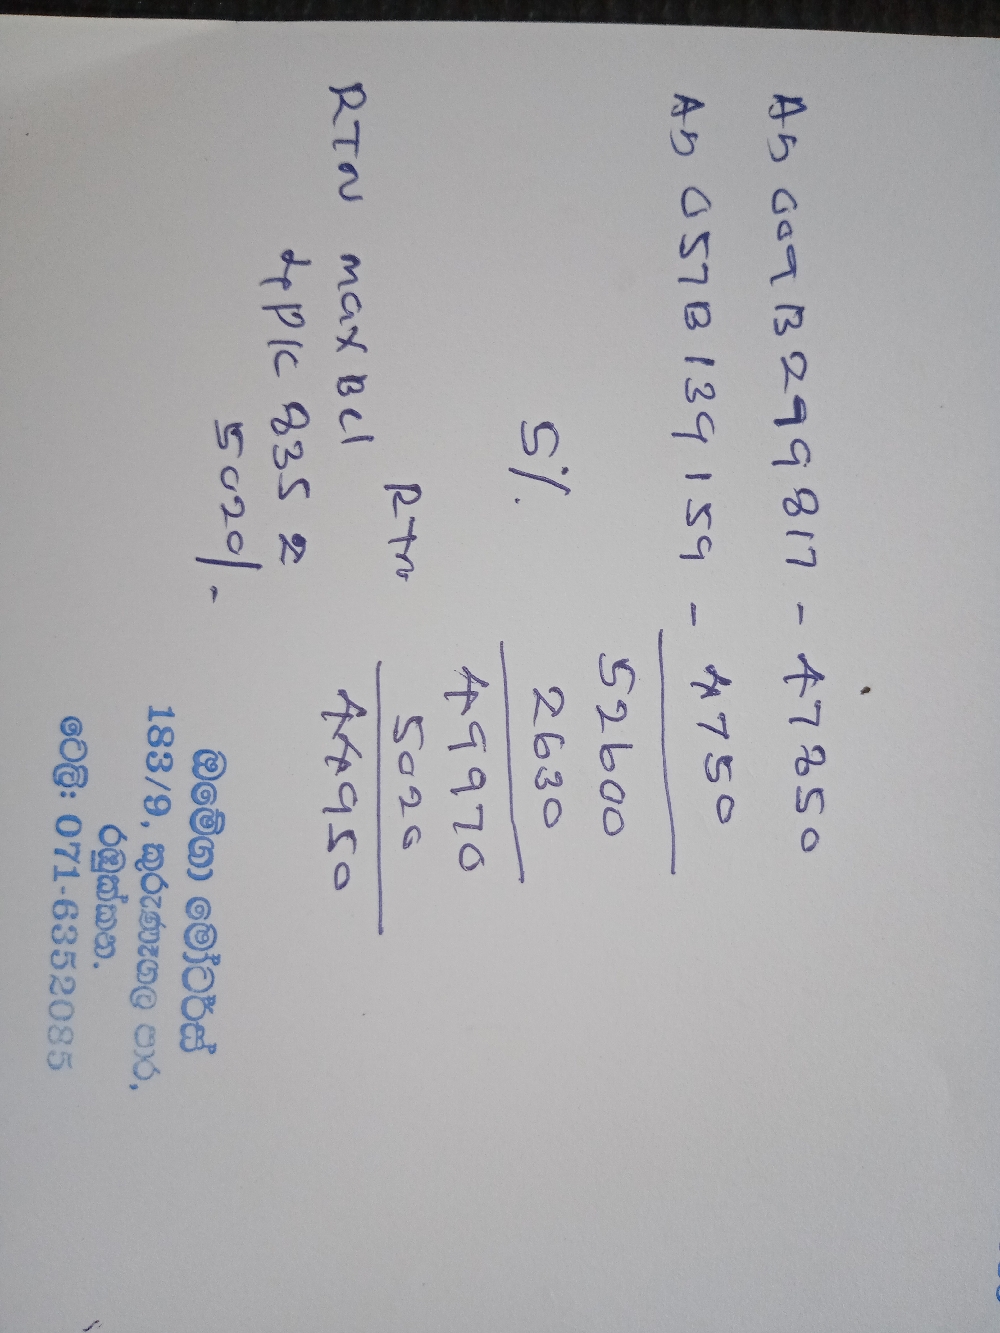 A5 009B299817 - 47850
A5 057B139159 - 4750
52600
5% 2630
49970
Rtn 5020
44950
RTN max Bcl
PK 835
5020/-
මෝටර්ස්
183/9, කුරුණෑගල පාර,
රඹුක්කන.
ටෙලි: 071-6352085